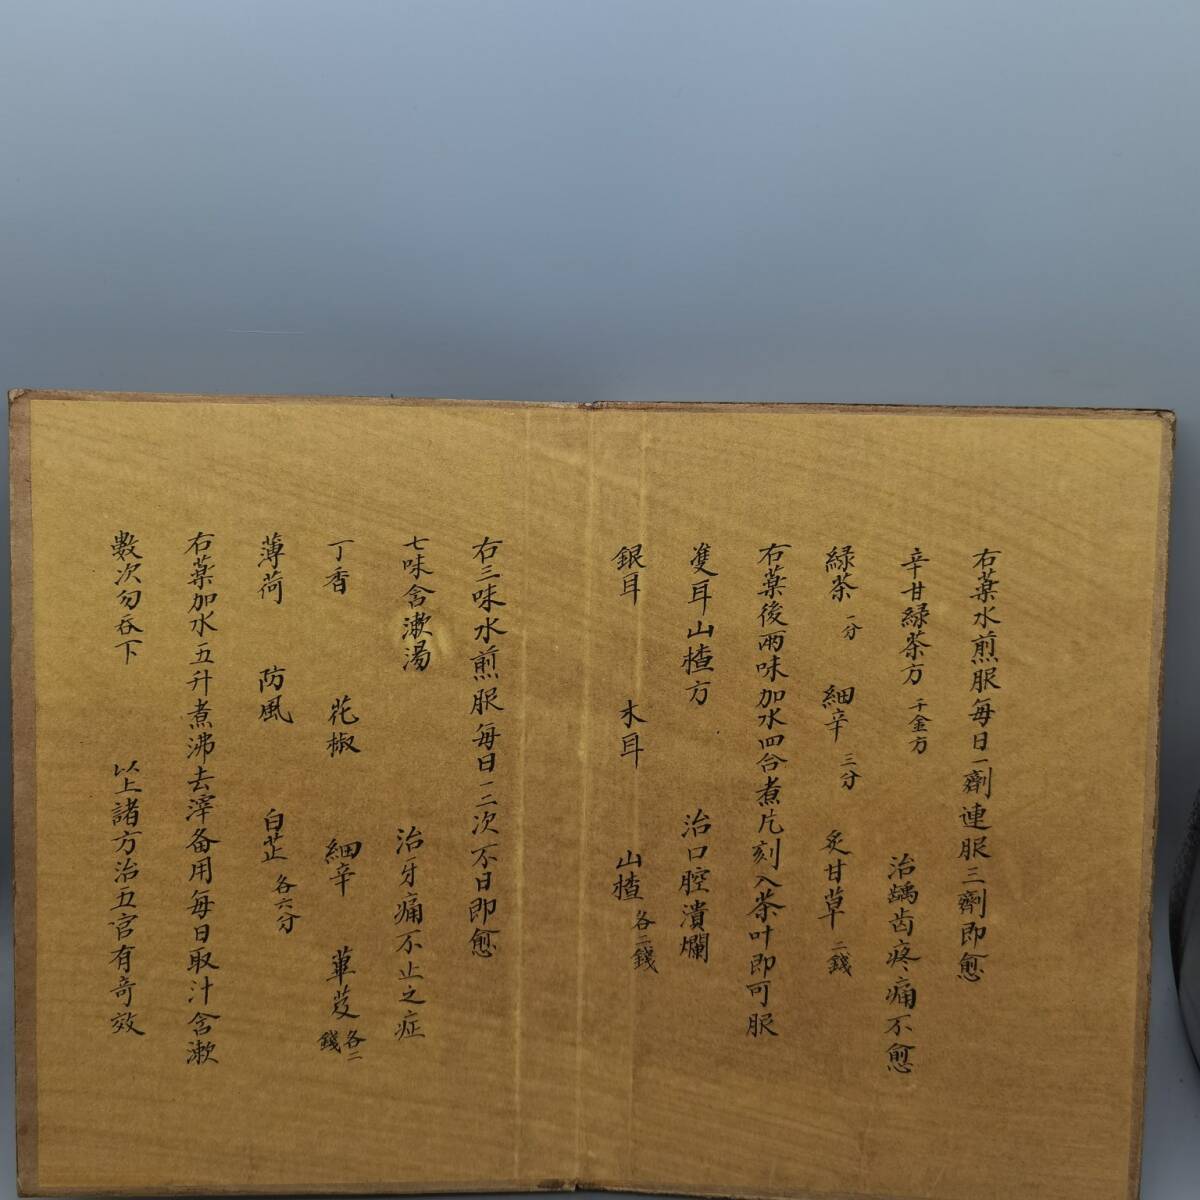 右藥水煎服每日一劑連服三劑即愈
辛甘綠茶方 千金方 治齲齒疼痛不愈
綠茶 一分 細辛 三分 炙甘草 二錢
右藥後兩味加水四合煮片刻入茶叶即可服
雙耳山楂方 治口腔潰爛
銀耳 木耳 山楂 各二錢
右三味水煎服每日一二次不日即愈
七味含漱湯 治牙痛不止之症
丁香 花椒 細辛 蓽茇 各二錢
薄荷 防風 白芷 各六分
右藥加水五升煮沸去滓备用每日取汁含漱
數次勿吞下 以上諸方治五官有奇效